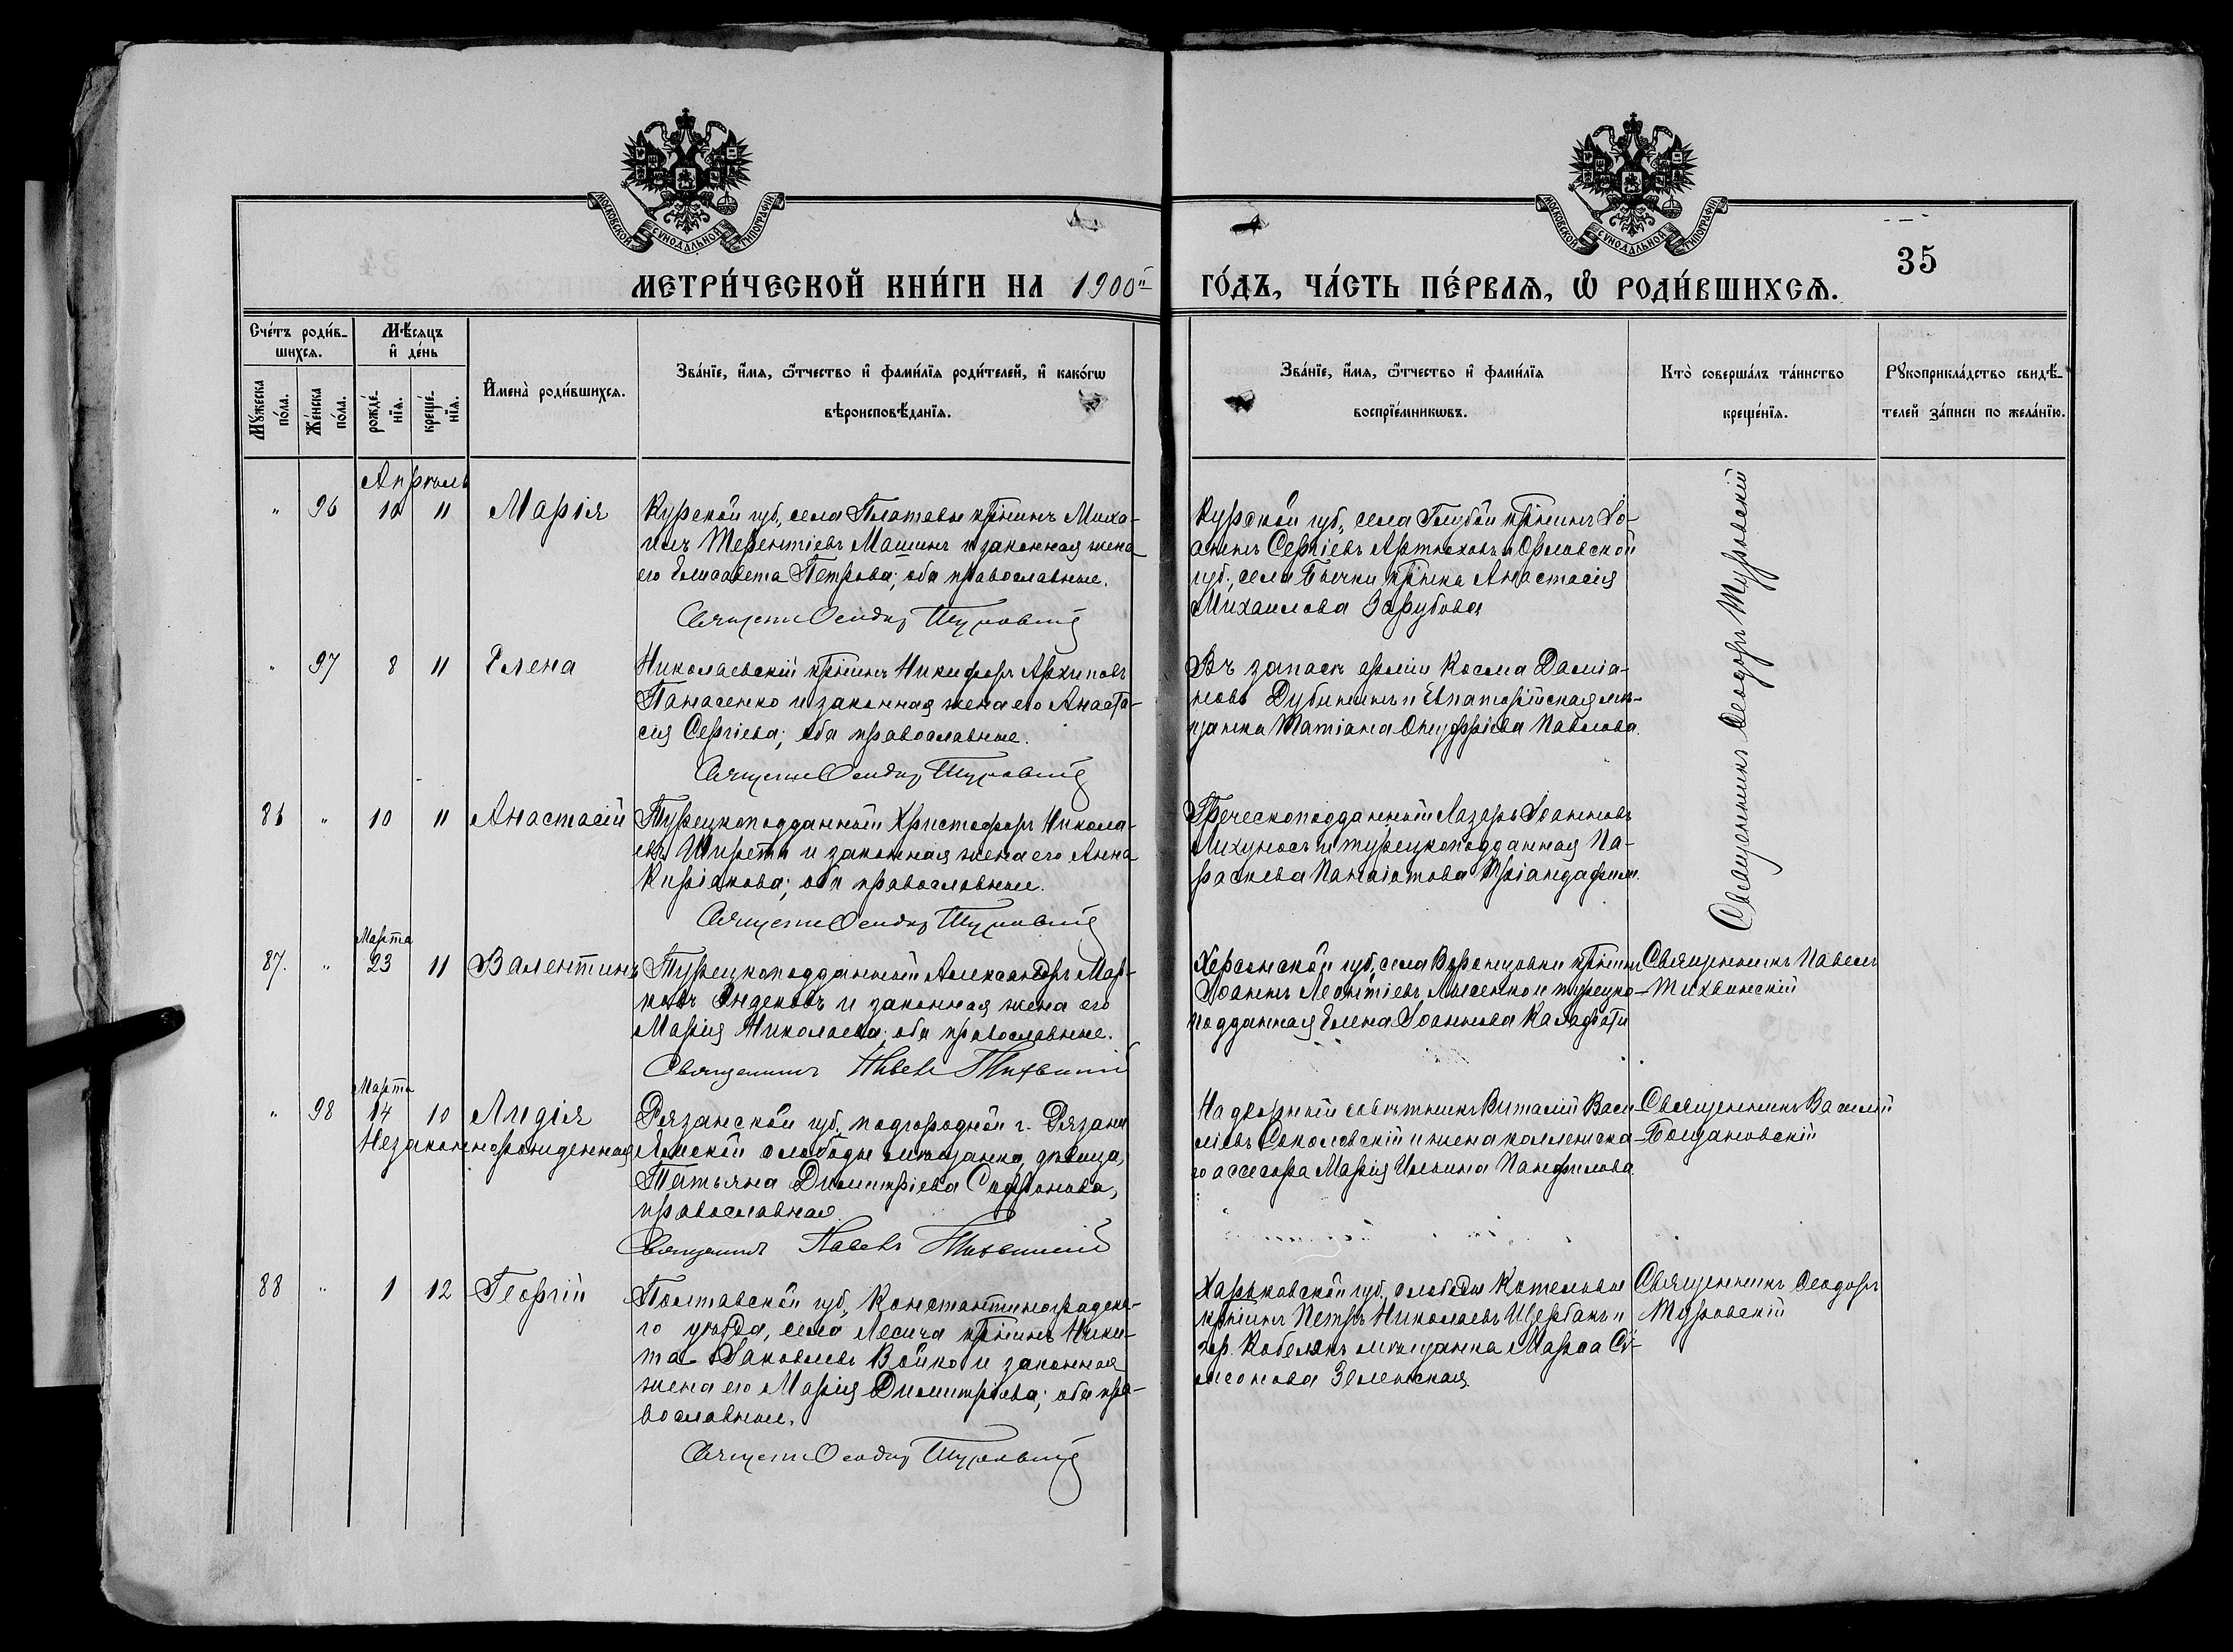 МОСКОВСКОЙ СѴНОДАЛЬНОЙ ТИПОГРАФІИ
МОСКОВСКОЙ СѴНОДАЛЬНОЙ ТИПОГРАФІИ
35
МЕТРИ́ЧЕСКОЙ КНИ́ГИ НА 1900й ГО́ДЪ, ЧА́СТЬ ПЕ́РВАѦ, Ѡ РОДИ́ВШИХСѦ.
Сче́тъ роди́в-
шихсѧ.
Мѣ́сѧцъ
и҆ де́нь
Мꙋ́жеска
по́ла.
Же́нска
по́ла.
рожде́-
нїѧ.
креще́-
нїѧ.
И҆мена̀ роди́вшихсѧ.
Зва́нїе, и҆́мѧ, ѻ҆́тчество и҆ фами́лїѧ роди́телей, и҆ како́гѡ
вѣроисповѣ́данїѧ.
Зва́нїе, и҆́мѧ, ѻ҆́тчество и҆ фами́лїѧ
воспрїе́мникѡвъ.
Кто̀ соверша́лъ та́инство
креще́нїѧ.
Рꙋкоприкла́дство свидѣ́-
телей за́писи по жела́нїю.
Апрѣль
" 96 10 11 Марія
Курской губ., села Платавы кр̃нинъ Миха-
илъ Терентіевъ Машинъ и законная жена
его Елисавета Петрова; оба православные.
Священ. Ѳеодор Туровскій
Курской губ., села Голубой кр̃нинъ Іо-
аннъ Сергіевъ Артюховъ и Орловской
губ., села Бычки кр̃нка Анастасія
Михаилова Зарубова
Священникъ Ѳеодоръ Туровскій
" 97 8 11 Елена
Николаевскій кр̃нинъ Никифоръ Архиповъ
Панасенко и законная жена его Анаста-
сія Сергіева; оба православные.
Священ. Ѳеодор Туровскій
Въ запасѣ арміи Косма Даміа-
новъ Дубининъ и Евпаторійская мѣ-
щанка Татіана Онуфріева Павлова.
86 " 10 11 Анастасій
Турецкоподданный Христофоръ Никола-
евъ Ширети и законная жена его Анна
Киріакова; оба православные.
Священ. Ѳеодор Туровскій
Греческоподданный Лазарь Іоанновъ
Лихуносъ и турецкоподданная Па-
раскева Панаіотова Тріандафили.
Марта
87. " 23 11 Валентинъ
Турецкоподданный Александръ Мар-
ковъ Индековъ и законная жена его
Марія Николаева; оба православные.
Священникъ Павелъ Тихвинскій
Херсонской губ., села Воронцовки кр̃нинъ
Іоаннъ Леонтіевъ Лысенко и турецко-
подданная Елена Іоаннова Калафати
Священникъ Павелъ
Тихвинскій
Марта
" 98 14 10 Лидія
Незаконнорожденная
Рязанской губ. подгородной г. Рязани
Ямской слободы мѣщанка, дѣвица,
Татьяна Димитріева Сафронова,
православная.
Священникъ Павелъ Тихвинскій
Надворный совѣтникъ Виталій Васи-
ліевъ Соколовскій и жена коллежска-
го ассесора Марія Ильина Панфилова.
Священникъ Василій
Богдановскій
88 " 1 12 Георгій
Полтавской губ., Константиноградска-
го уѣзда, села Лесича кр̃нинъ Ники-
та Іаковлевъ Бойко и законная
жена его Марія Димитріева; оба пра-
вославные.
Священ. Ѳеодор Туровскій
Харьковской губ., слободы Котельвы
кр̃нинъ Петръ Николаевъ Щербакъ и
гор. Кобелякъ мѣщанка Марѳа Си-
меонова Зеленская.
Священникъ Ѳеодоръ
Туровскій